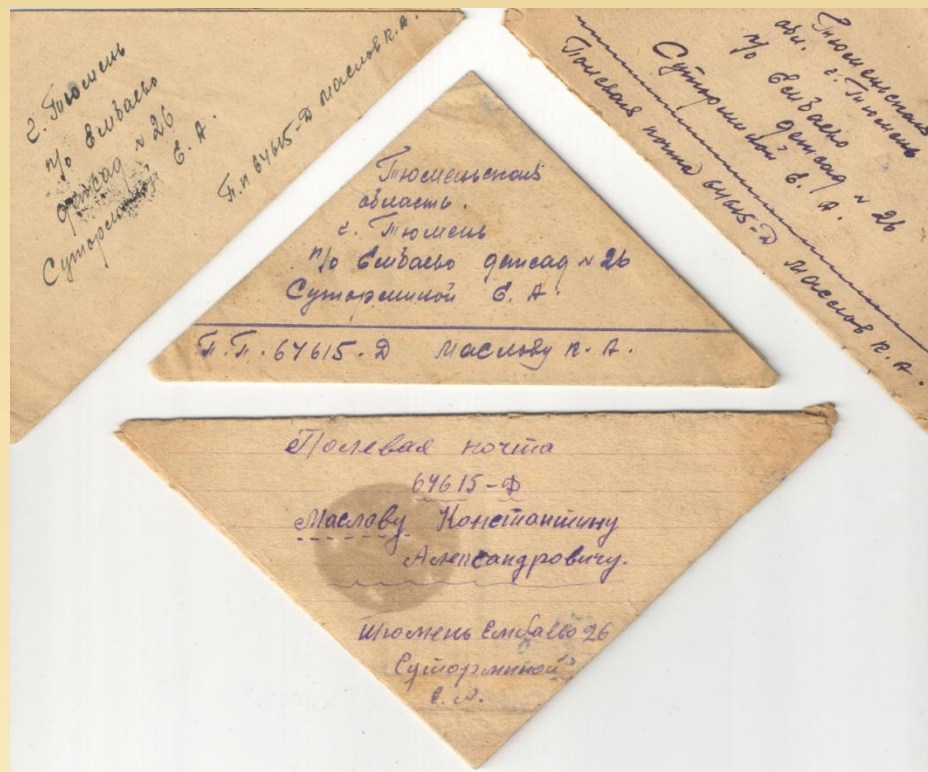 г. Тюмень
п/о Ембаево
детсад № 26
Суторминой Е. А.
П.п 64615-Д Маслов К. А.
Тюменьская
обл. г. Тюмень
п/о Ембаево
детсад № 26
Суторминой Е. А.
Полевая почта 64615-Д Маслов К. А.
Тюменьская
область.
г. Тюмень
п/о Ембаево детсад № 26
Суторминой Е. А.
П.П. 64615-Д Маслову К. А.
Полевая почта
64615-Ф
Маслову Константину
Александровичу.
Тюмень Ембаево 26
Суторминой
Е. А.